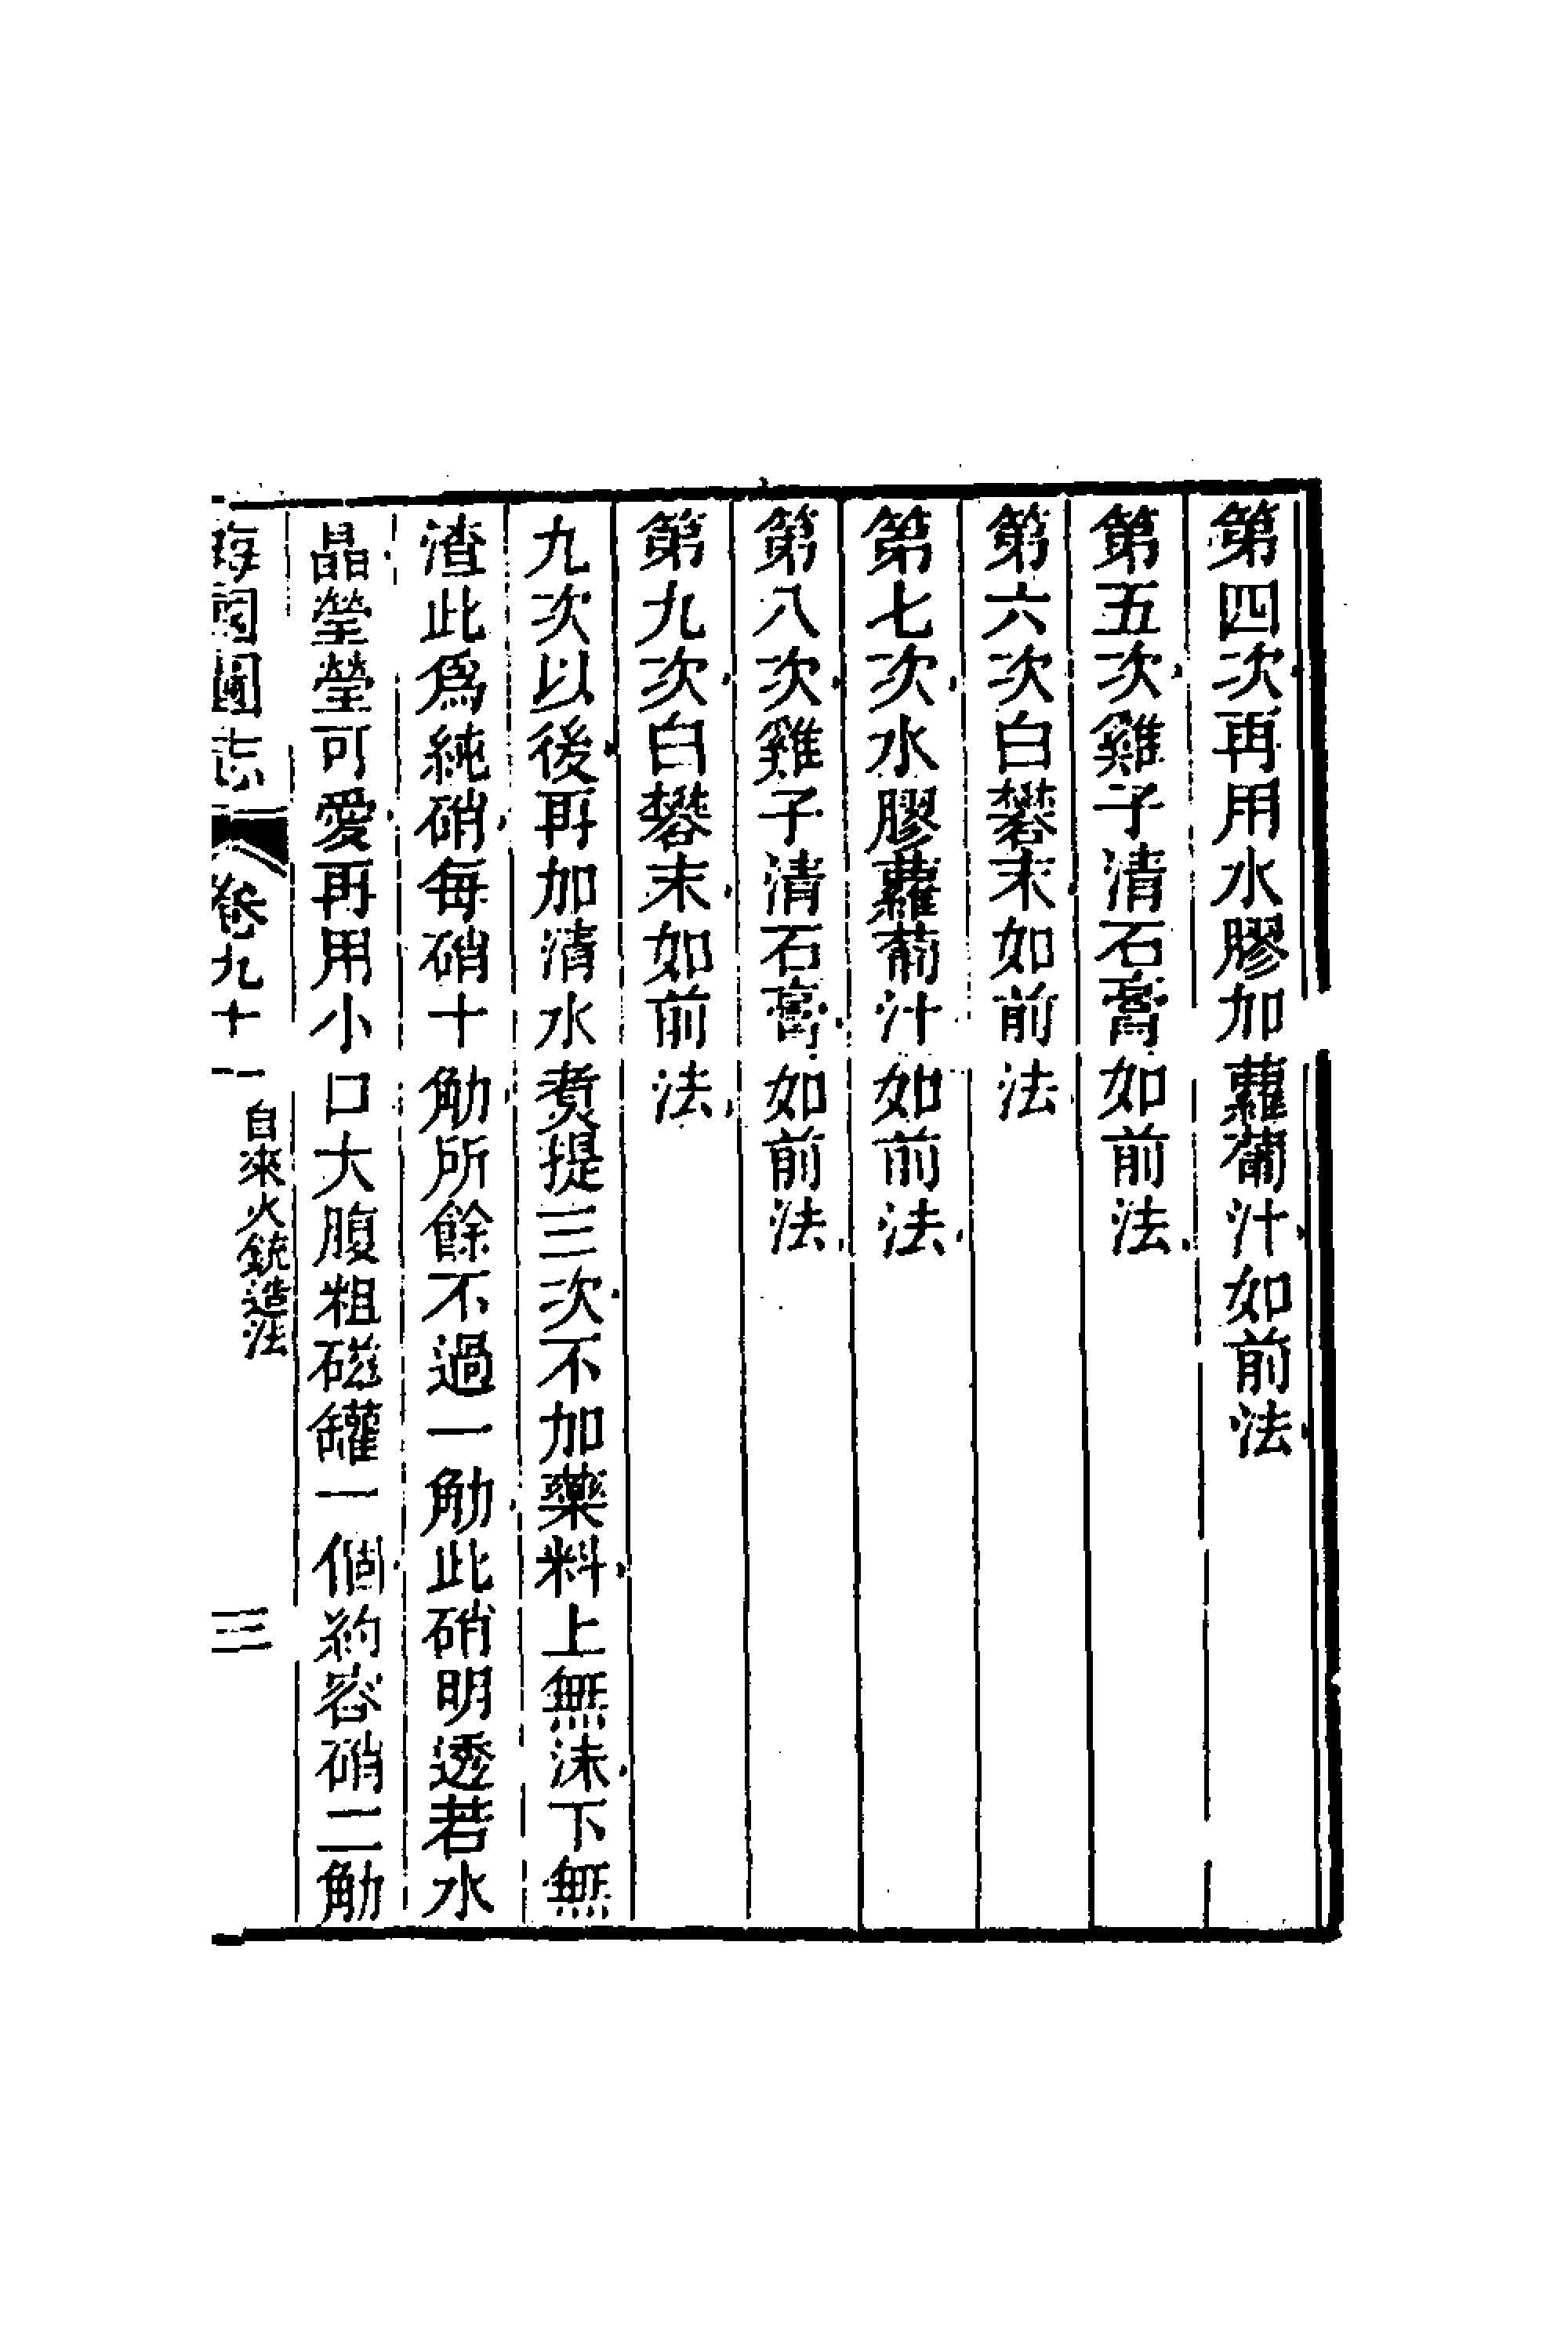 第四次再用水膠加蘿蔔汁如前法
第五次雞子清石膏如前法
第六次白礬末如前法
第七次水膠蘿蔔汁如前法
第八次雞子清石膏如前法
第九次白礬末如前法
九次以後再加清水煑提三次不加藥料上無沫下無
渣此爲純硝每硝十觔所餘不過一觔此硝明透若水
晶瑩瑩可愛再用小口大腹粗磁罐一個約容硝二觔
海國圖志 卷九十一 自來火銃造法 三